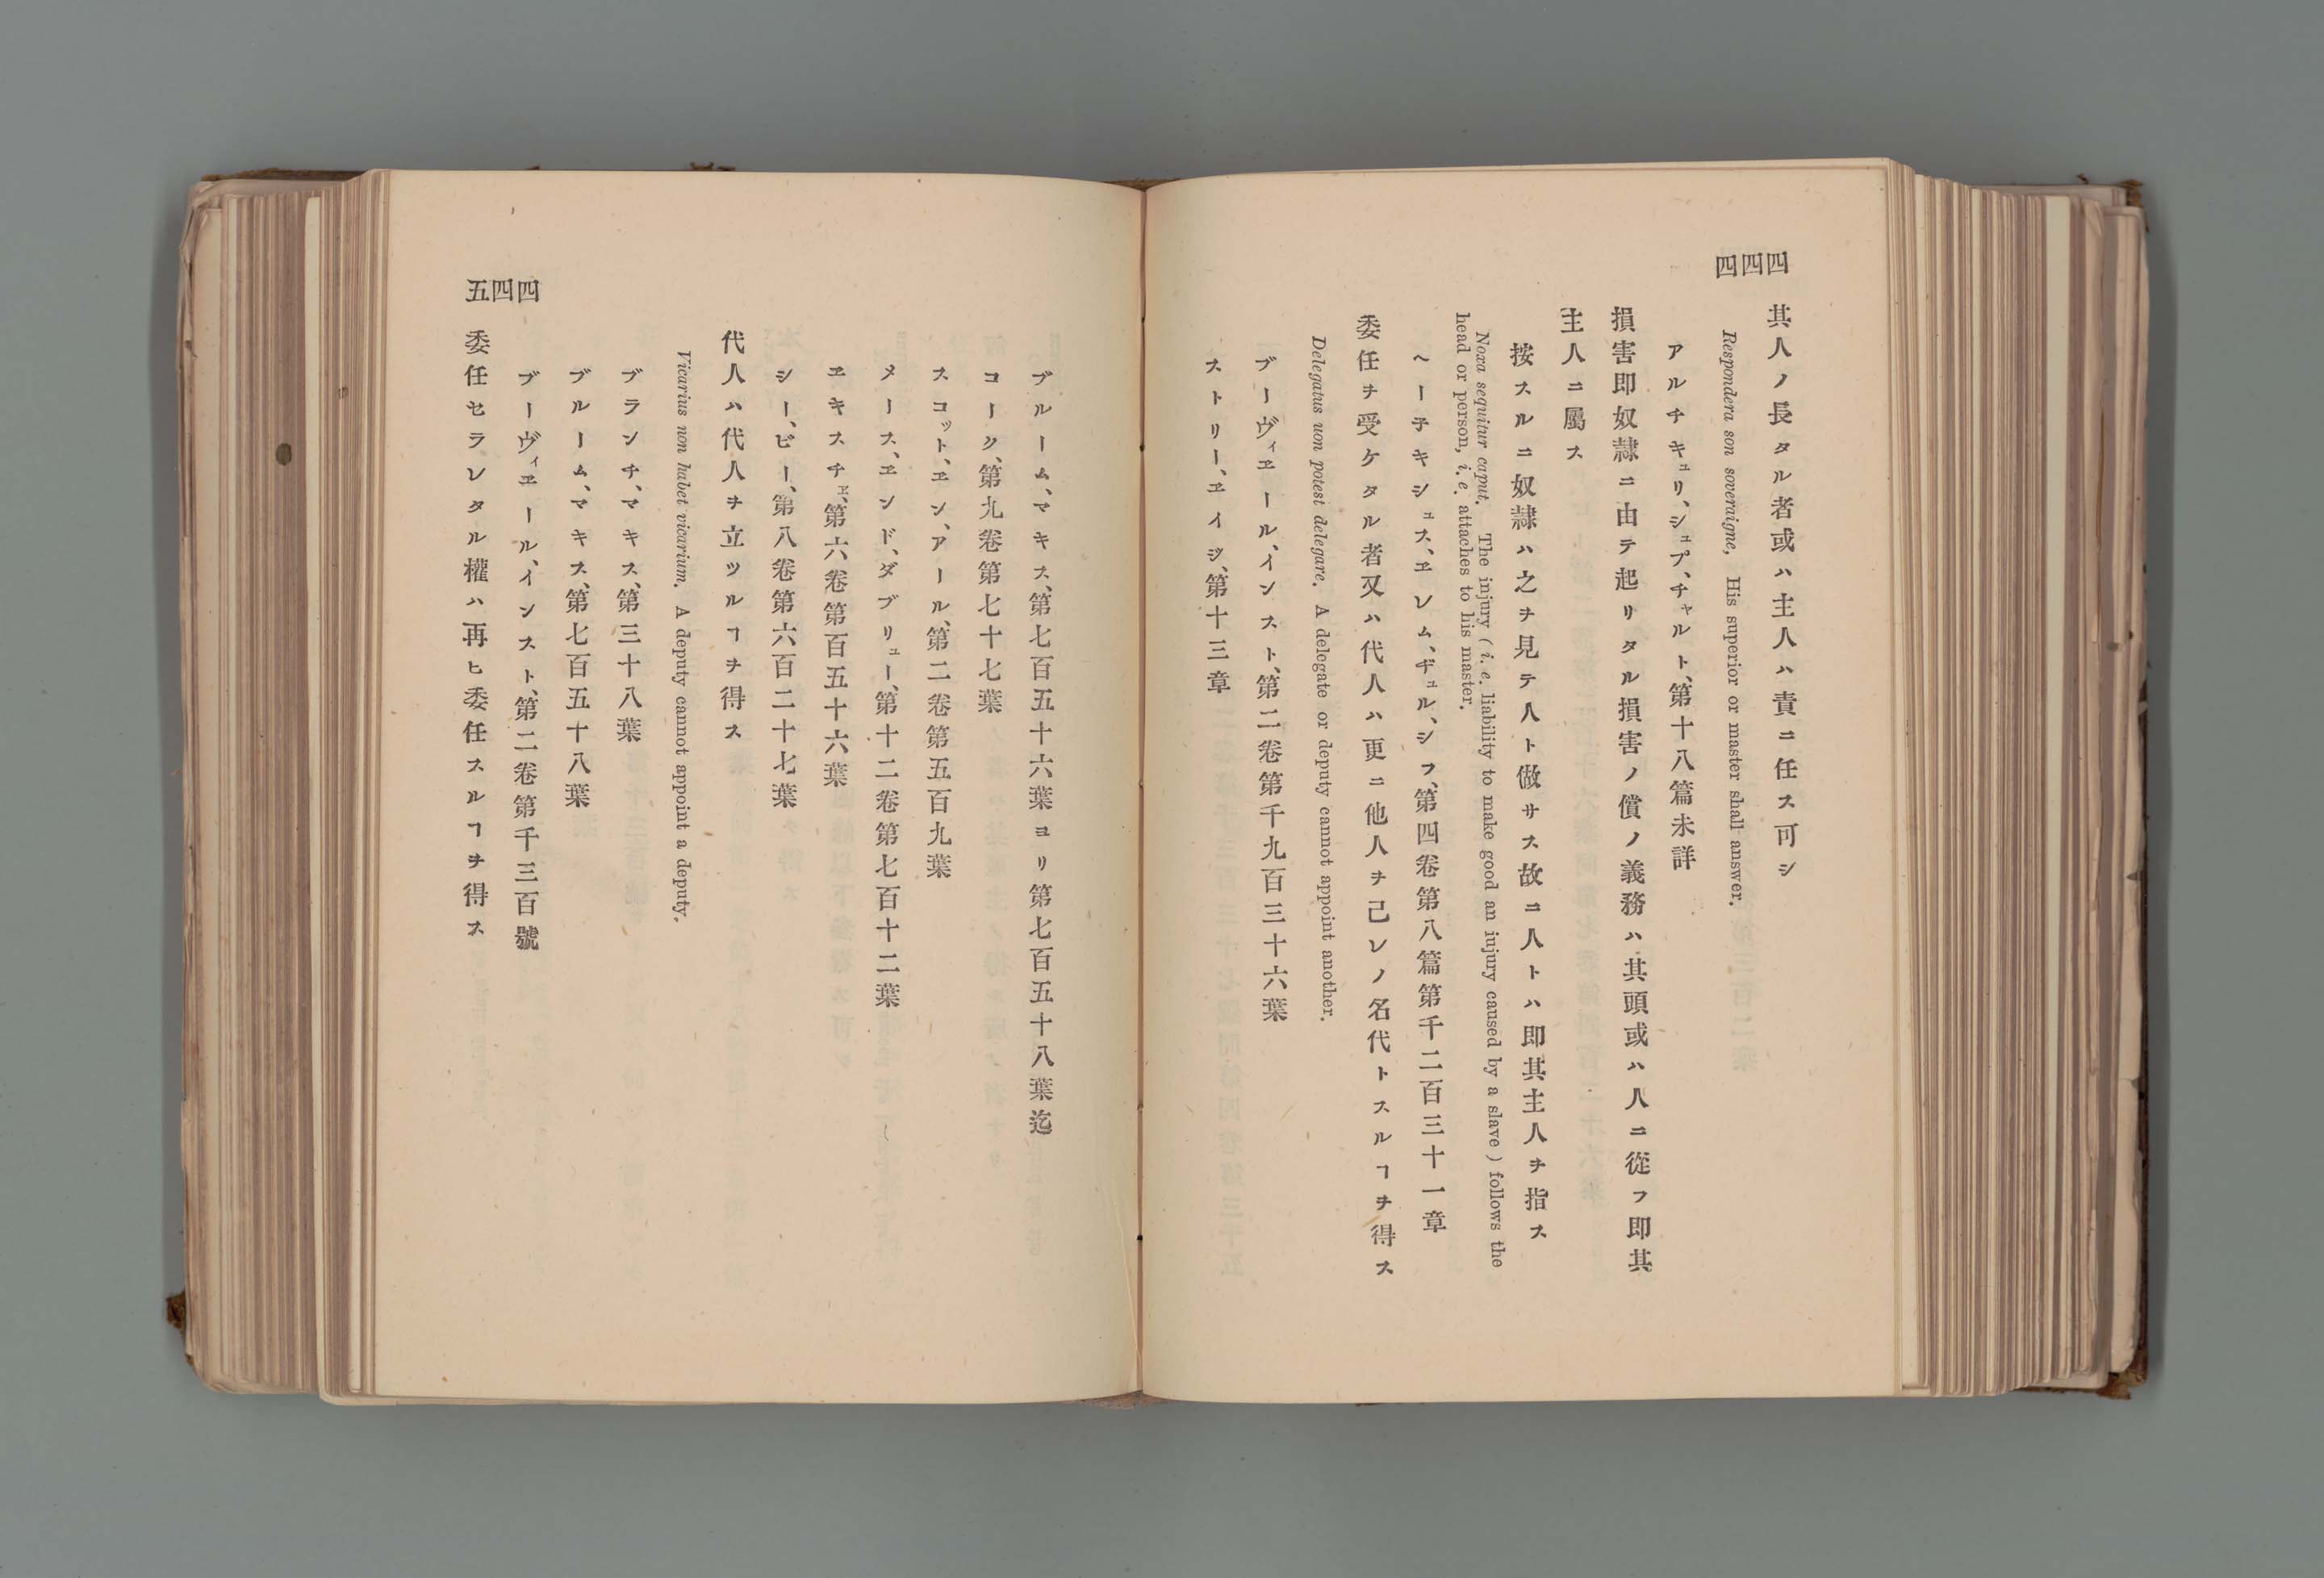 四四四
其人ノ長タル者或ハ主人ハ責ニ任ス可シ
Respondera son soveraigne, His superior or master shall answer.
アルチキュリ、シュプ、チャルト、第十八篇未詳
損害即奴隷ニ由テ起リタル損害ノ償ノ義務ハ其頭或ハ人ニ從フ即其
主人ニ屬ス
按スルニ奴隷ハ之ヲ見テ人ト做サス故ニ人トハ即其主人ヲ指ス
Noxa sequitur caput. The injury (i. e. liability to make good an iujury caused by a slave) follows the
head or person, i. e. attaches to his master.
ヘーテキシュス、ヱレム、ヂュル、シフ、第四卷第八篇第千二百三十一章
委任ヲ受ケタル者又ハ代人ハ更ニ他人ヲ己レノ名代トスルヿヲ得ス
Delegatus uon potest delegare. A delegate or deputy cannot appoint another.
ブーヴィヱール、インスト、第二卷第千九百三十六葉
ストリー、ヱイジ、第十三章
ブルーム、マキス、第七百五十六葉ヨリ第七百五十八葉迄
コーク、第九卷第七十七葉
スコット、ヱン、アール、第二卷第五百九葉
メース、ヱンド、ダブリュー、第十二卷第七百十二葉
ヱキスチェ、第六卷第百五十六葉
シー、ビー、第八卷第六百二十七葉
代人ハ代人ヲ立ツルヿヲ得ス
Vicarius non habet vicarium. A deputy cannot appoint a deputy.
ブランチ、マキス、第三十八葉
ブルーム、マキス、第七百五十八葉
ブーヴィヱール、インスト、第二卷第千三百號
四四五
委任セラレタル權ハ再ヒ委任スルヿヲ得ス